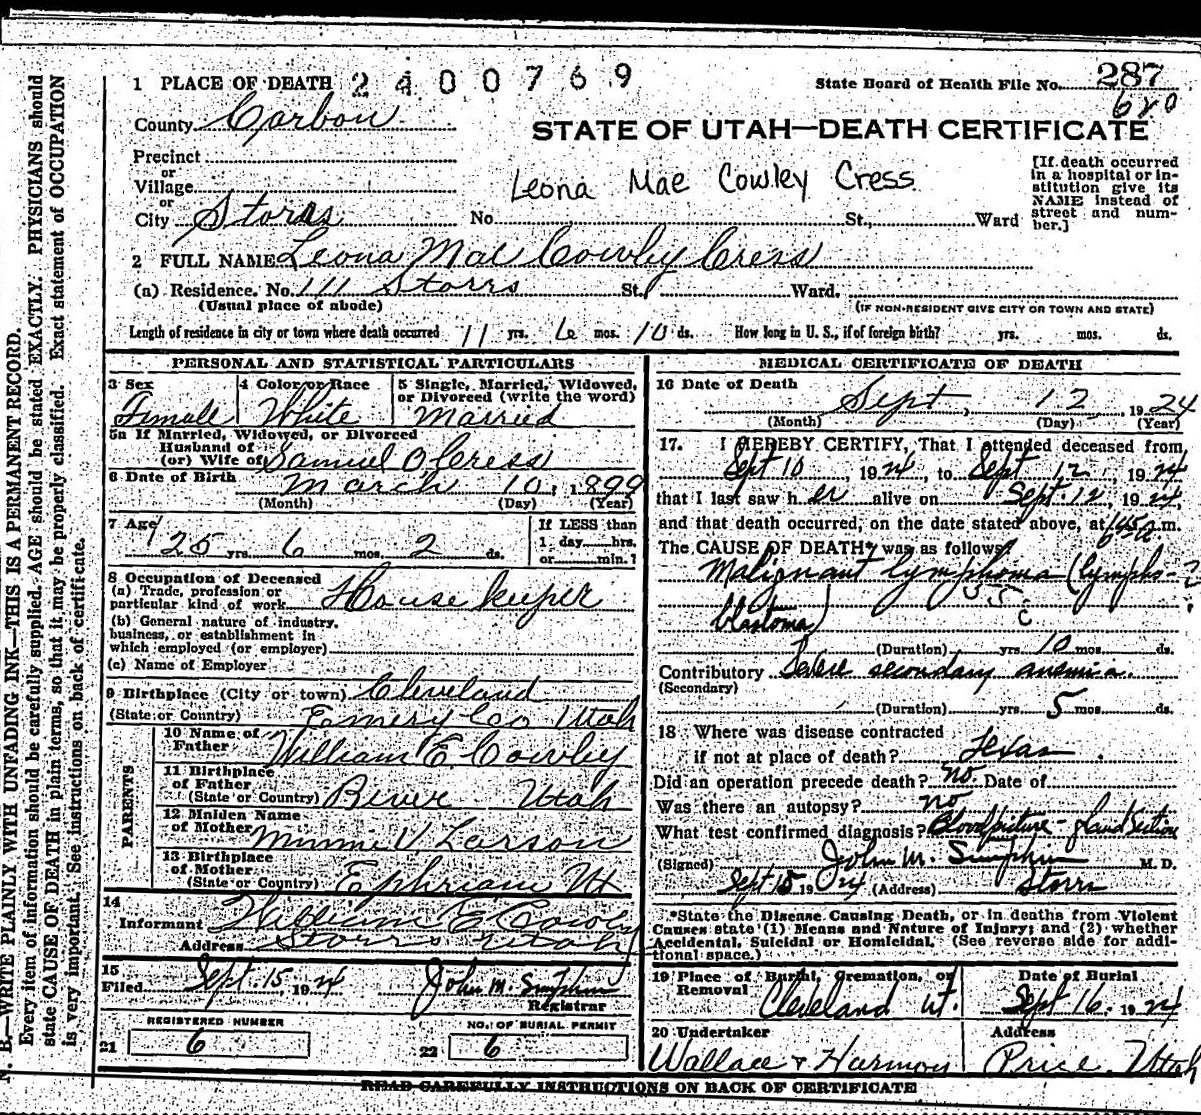 N. B.—WRITE PLAINLY WITH UNFADING INK—THIS IS A PERMANENT RECORD.
Every item of information should be carefully supplied. AGE should be stated EXACTLY. PHYSICIANS should
state CAUSE OF DEATH in plain terms, so that it may be properly classified. Exact statement of OCCUPATION
is very important. See instructions on back of certificate.
1 PLACE OF DEATH 2400769
State Board of Health File No. 287
680
County Carbon
STATE OF UTAH—DEATH CERTIFICATE
Precinct
or
Village
or
City Storrs No. St., Ward
Leona Mae Cowley Cress
[If death occurred
in a hospital or in-
stitution give its
NAME instead of
street and num-
ber.]
2 FULL NAME Leona Mae Cowley Cress
(a) Residence. No. 111 Storrs St. Ward.
(Usual place of abode) (IF NON-RESIDENT GIVE CITY OR TOWN AND STATE)
Length of residence in city or town where death occurred 11 yrs. 6 mos. 10 ds. How long in U. S., if of foreign birth? yrs. mos. ds.
PERSONAL AND STATISTICAL PARTICULARS
3 Sex
Female
4 Color or Race
White
5 Single, Married, Widowed,
or Divorced (write the word)
Married
5a If Married, Widowed, or Divorced
Husband of
(or) Wife of Samuel O Cress
6 Date of Birth March 10, 1899
(Month) (Day) (Year)
7 Age
25 yrs. 6 mos. 2 ds.
If LESS than
1 day hrs.
or min.?
8 Occupation of Deceased
(a) Trade, profession or
particular kind of work House keeper
(b) General nature of industry,
business, or establishment in
which employed (or employer)
(c) Name of Employer
9 Birthplace (City or town) Cleveland
(State or Country) Emery Co Utah
PARENTS
10 Name of
Father William E. Cowley
11 Birthplace
of Father
(State or Country) Bever Utah
12 Maiden Name
of Mother Minnie V Larson
13 Birthplace
of Mother
(State or Country) Ephriam Ut
14
Informant William E Cowley
Address Storrs Utah
15
Filed Sept. 15 1924 John M. Simpkin
Registrar
REGISTERED NUMBER
21 6
NO. OF BURIAL PERMIT
22 6
MEDICAL CERTIFICATE OF DEATH
16 Date of Death
Sept, 12, 1924
(Month) (Day) (Year)
17. I HEREBY CERTIFY, That I attended deceased from
Sept 10, 1924, to Sept 12, 1924
that I last saw her alive on Sept. 12, 1924,
and that death occurred, on the date stated above, at m.
The CAUSE OF DEATH* was as follows:
Malignant lymphoma (lympho-
blastoma)
(Duration) yrs. 10 mos. ds.
Contributory Severe secondary anemia.
(Secondary)
(Duration) yrs. 5 mos. ds.
18 Where was disease contracted
if not at place of death? Texas.
Did an operation precede death? no. Date of
Was there an autopsy? no
What test confirmed diagnosis? Blood picture - gland section
(Signed) John M. Simpkin M. D.
Sept 15 1924 (Address) Storrs
*State the Disease Causing Death, or in deaths from Violent
Causes state (1) Means and Nature of Injury; and (2) whether
Accidental, Suicidal or Homicidal. (See reverse side for addi-
tional space.)
19 Place of Burial, Cremation, or
Removal
Cleveland Ut.
Date of Burial
Sept 16. 1924
20 Undertaker
Wallace & Harmon
Address
Price, Utah
READ CAREFULLY INSTRUCTIONS ON BACK OF CERTIFICATE